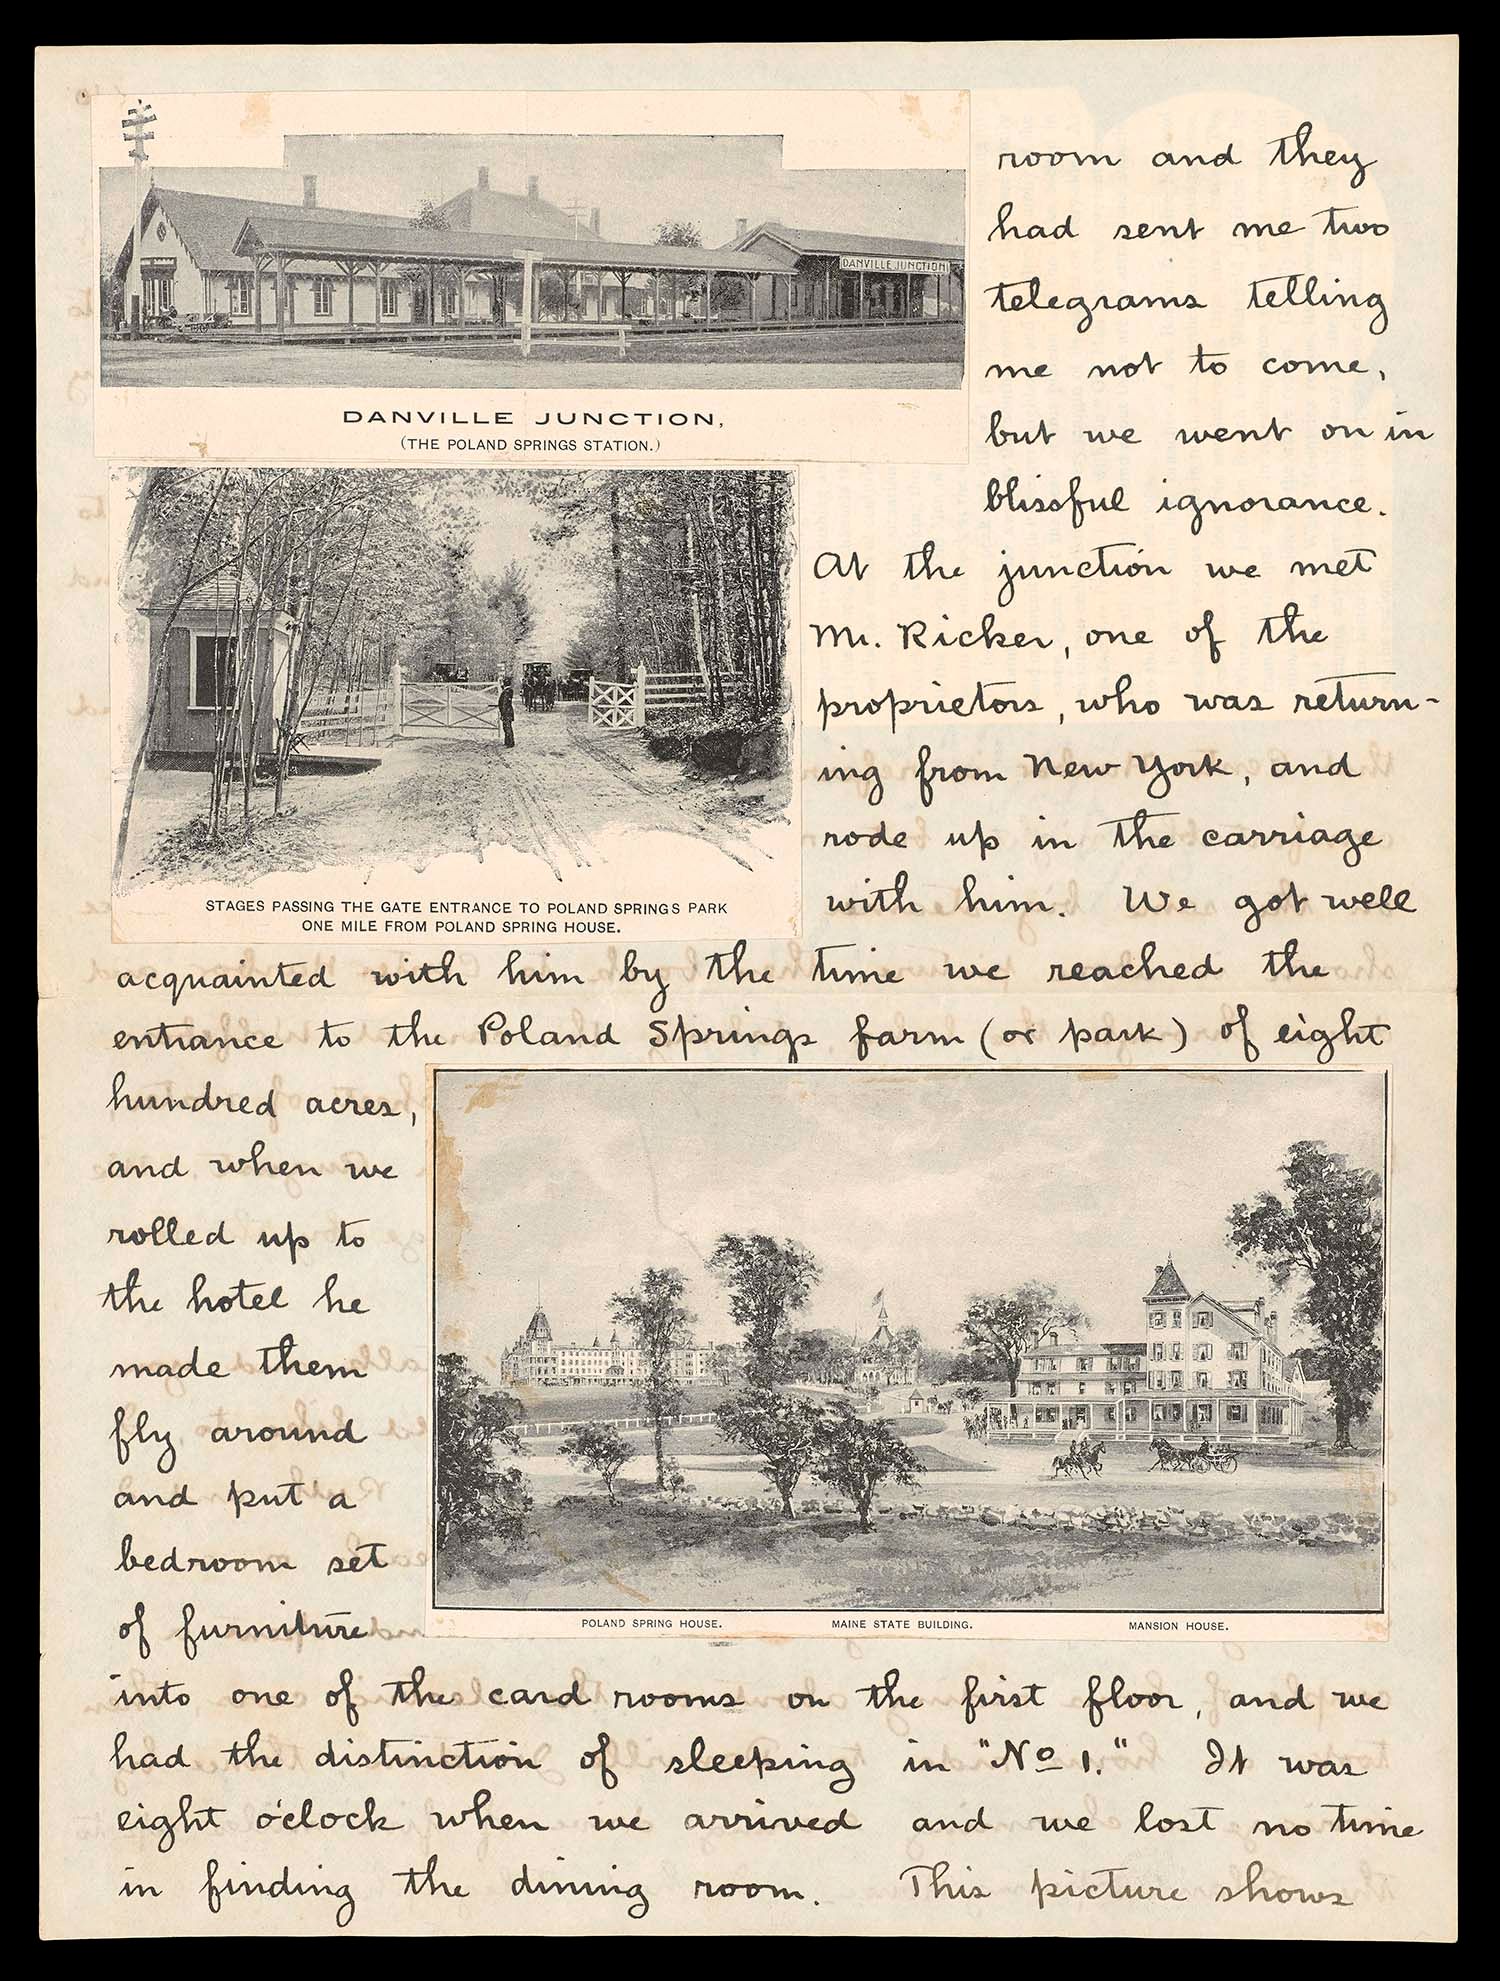 DANVILLE JUNCTION
DANVILLE JUNCTION,
(THE POLAND SPRINGS STATION.)
room and they
had sent me two
telegrams telling
me not to come,
but we went on in
blissful ignorance.
STAGES PASSING THE GATE ENTRANCE TO POLAND SPRINGS PARK
ONE MILE FROM POLAND SPRING HOUSE.
At the junction we met
Mr. Ricker, one of the
proprietors, who was return-
ing from New York, and
rode up in the carriage
with him. We got well
acquainted with him by the time we reached the
entrance to the Poland Springs farm (or park) of eight
hundred acres,
and when we
rolled up to
the hotel he
made them
fly around
and put a
bedroom set
of furniture
POLAND SPRING HOUSE. MAINE STATE BUILDING. MANSION HOUSE.
into one of the card rooms on the first floor, and we
had the distinction of sleeping in "No 1." It was
eight o'clock when we arrived and we lost no time
in finding the dining room. This picture shows